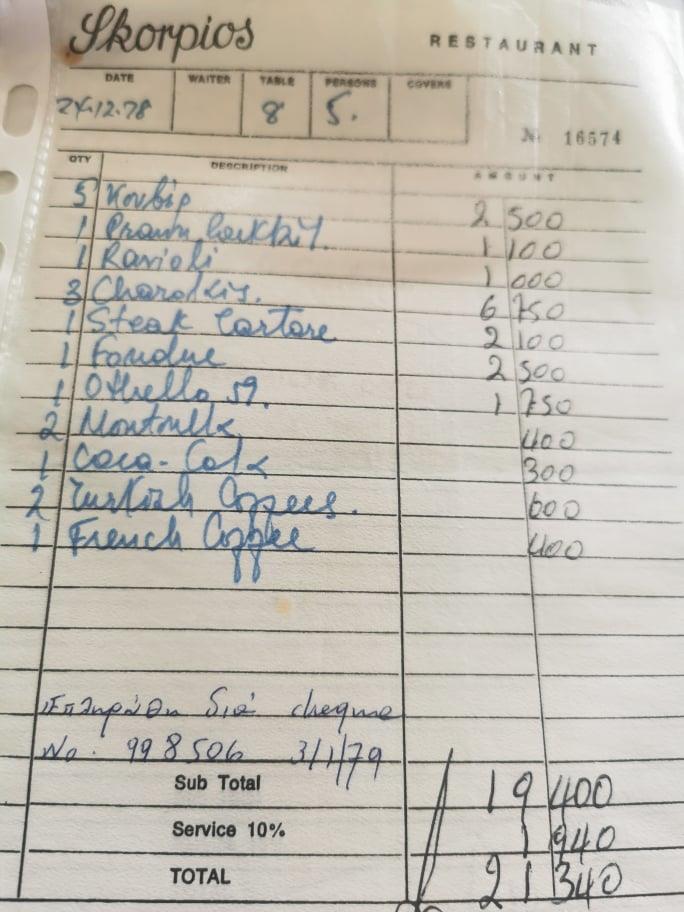 Skorpios
RESTAURANT
DATE WAITER TABLE PERSONS COVERS
24.12.78 8 5.
No 16574
QTY DESCRIPTION AMOUNT
5 2 500
1 Prawn Cocktail. 1 100
1 Ravioli 1 000
3 6 750
1 Steak Tartare 2 100
1 Fondue 2 500
1 Othello 59. 1 750
2 400
1 Coca-Cola 300
2 Turkish Coffees. 600
1 French Coffee 400
Επληρώθη διά cheque
No. 998506 3/1/79
Sub Total 19 400
Service 10% 1 940
TOTAL 21 340